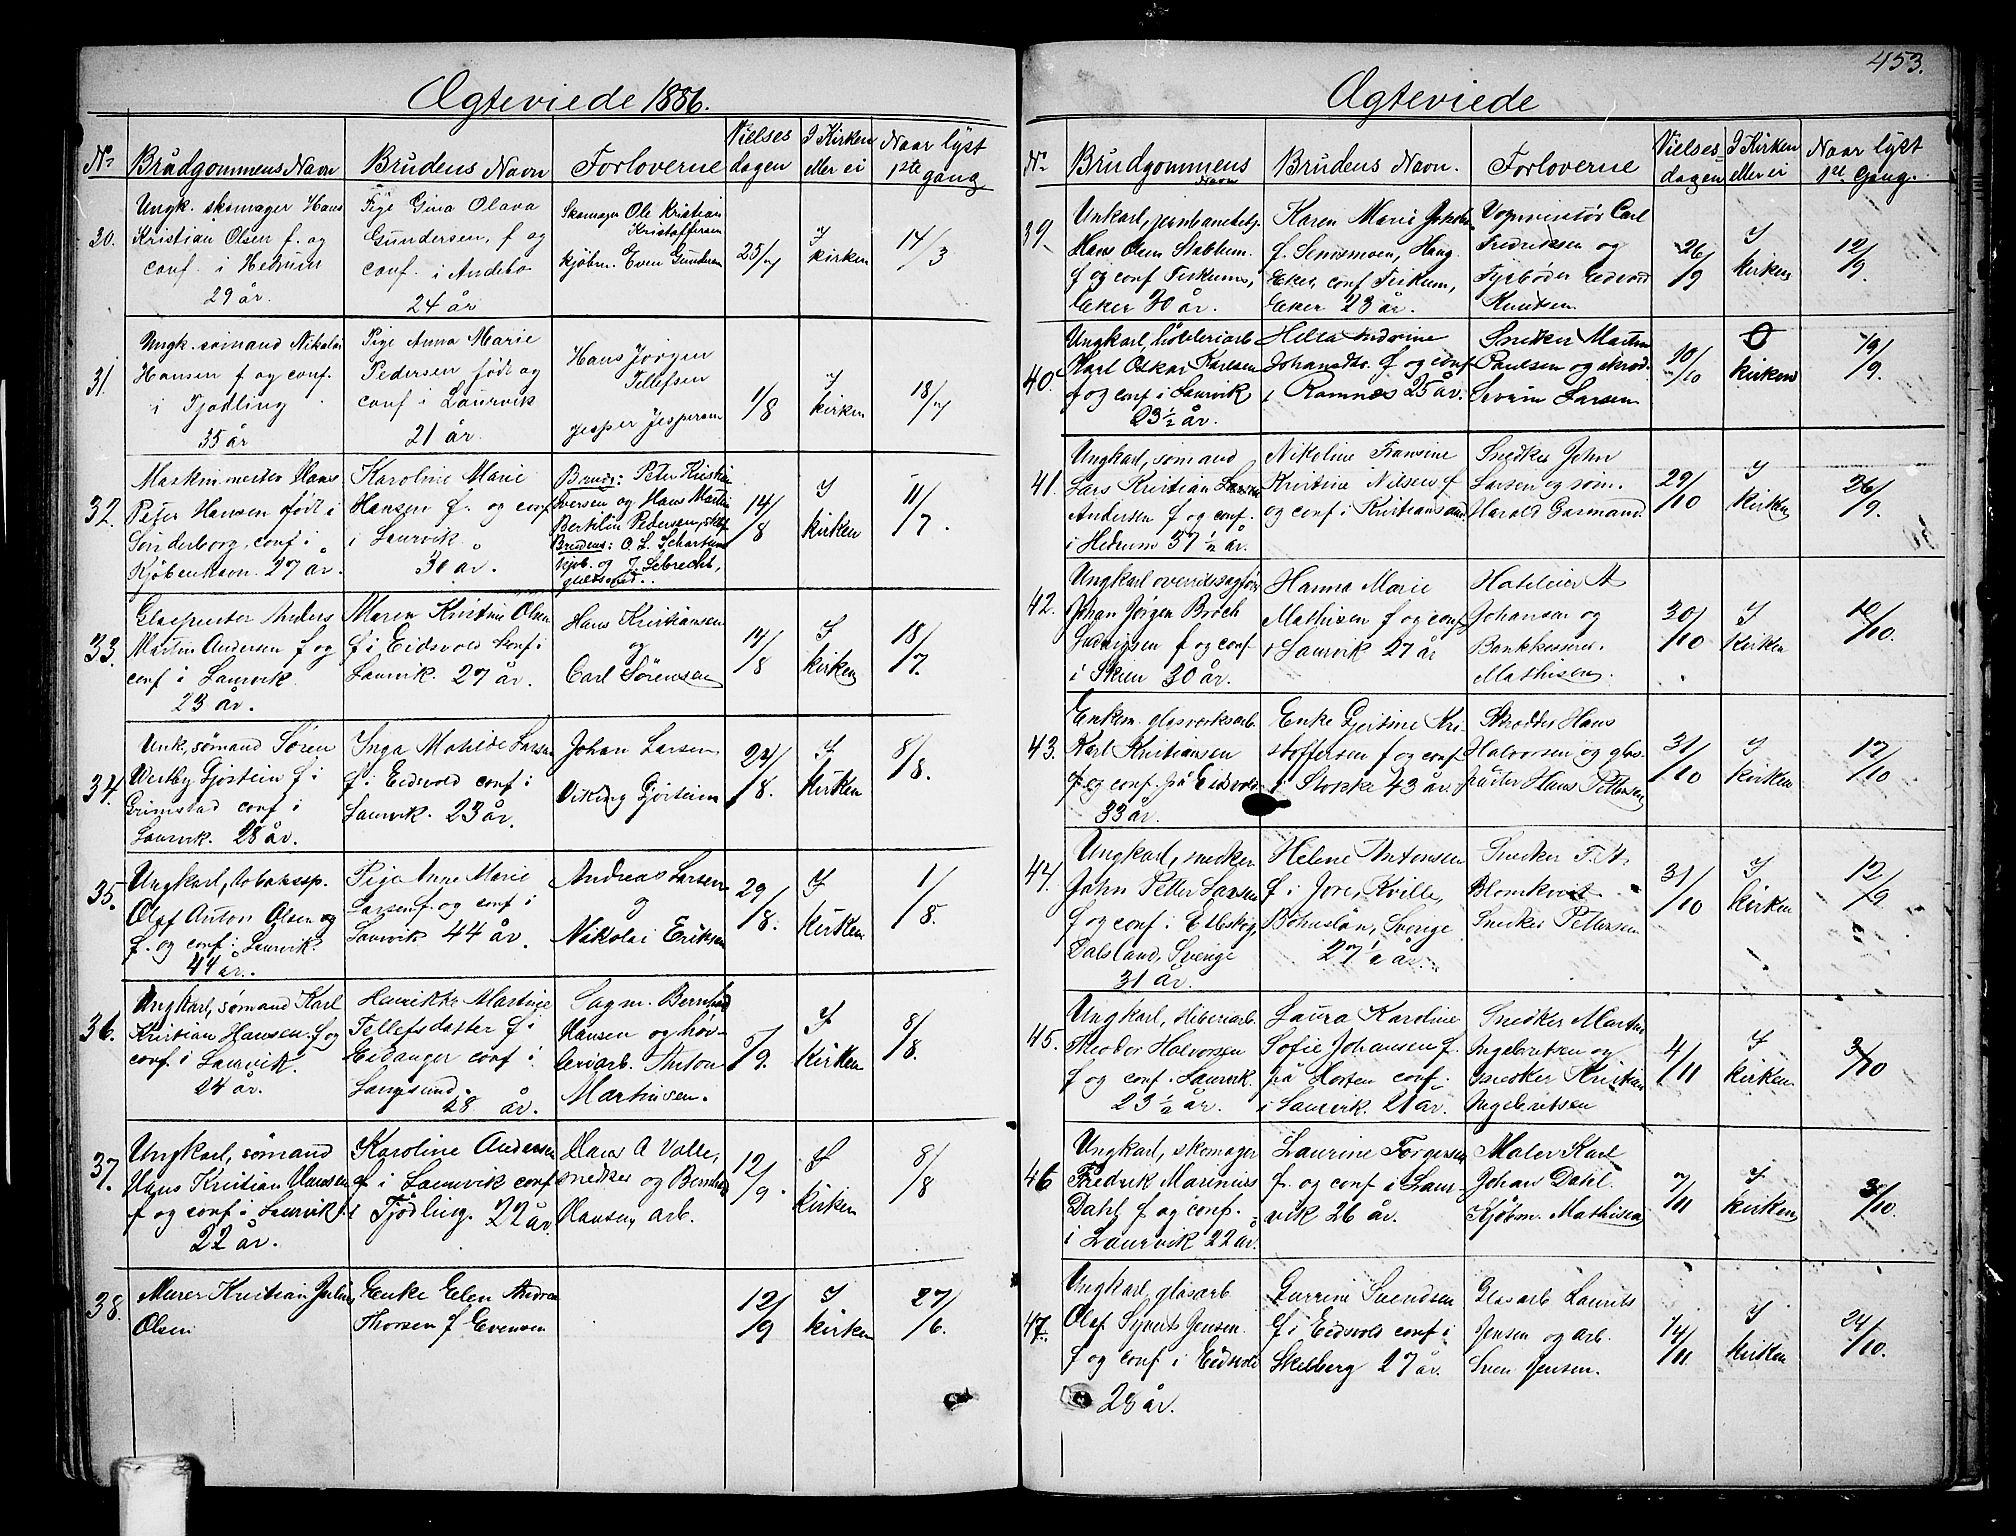 453.
Ægteviede 1886.
No Brudgommens Navn Brudens Navn Forloverne Vielses dagen I Kirken eller ei Naar lyst 1ste gang
30.
Ungk. skomager Hans
Kristian Olsen f. og
conf. i Hedrum
29 år.
Pige Gina Olava
Gundersen, f og
conf. i Andebo
24 år
Skomager Ole Kristian
Kristoffersen
kjøbm. Even Gundersen
25/7
I
kirken
14/3
31.
Ungk. sømand Nikolai
Hansen f og conf.
i Tjødling
35 år
Pige Anna Marie
Pedersen født og
conf i Laurvik
21 år.
Hans Jørgen
Tellefsen
Jesper Jespersen
1/8
I
kirken
18/7
32.
Maskinmester Hans
Peter Hansen født i
Sønderborg, conf. i
Kjøbenhavn. 27 år.
Karoline Marie
Hansen f. og conf
i Laurvik
30 år.
Brudg: Peter Kristian
Iversen og Hans Martin
Berklin Pedersen,
Brudens: O. L. Schartum
kjøb. og J. Lebrecht,
14/8
I
kirken
11/7.
33.
Glaspuster Anders
Martin Andersen f og
conf i Laurvik
23 år.
Maren Kristine Olsen
f i Eidsvold conf i
Laurvik. 27 år.
Hans Kristiansen
og
Carl Sørensen
14/8
I
kirken
18/7.
34.
Unk. sømand Søren
Westby Gjøstein f i
Grimstad conf i
Laurvik. 28 år.
Inga Matilde Larsen
f i Eidsvold conf i
Laurvik. 23 år.
Johan Larsen
Viking Gjøstein
22/8.
I
Kirken
8/8.
35.
Ungkarl, tobaksp.
Olaf Anton Olsen og
f. og conf i Laurvik.
44 år.
Pige Anne Marie
Larsen f. og conf i
Laurvik 44 år.
Andreas Larsen
og
Nikolai Eriksen
29/8.
I
Kirken
1/8.
36.
Ungkarl, sømand Karl
Kristian Hansen f og
conf. i Laurvik.
24 år.
Henrikke Martine
Tellefsdatter f i
Eidanger conf i
Langesund.
28 år.
Sagm. Bernhard
Hansen og høv-
leriarb. Anton
Martinsen.
5/9.
I
Kirken
8/8.
37.
Ungkarl, sømand
Hans Kristian Hansen
f og conf i Laurvik
22 år.
Karoline Andersen
f i Laurvik conf
i Tjødling. 22 år
Claus A Valle,
snedker og Bernhard
Hansen arb.
12/9.
I
kirken
8/8
38.
Murer Kristian Julius
Olsen
Enke Elen Andrea
Thorsen f Evensen
12/9
I
kirken
27/6.
Ægteviede
No Brudgommens Navn Brudens Navn. Forloverne Vielses dagen I Kirken eller ei Naar lyst 1ste Gang.
39
Unkarl, jernbanebetj.
Hans Olsen Stabbum
f og conf Fiskum,
Eker 30 år.
Karen Marie
f. Hang
Eker, conf Fiskum,
Eker 23 år.
Vognmester Carl
Fredriksen og
Fyrbøder Edvard
Knudsen.
26/9
I
kirken
12/9.
40.
Ungkarl høvleriarb
Karl Oskar Karlsen
f og conf i Laurvik
23 ½ år.
Hella Andrine
Johansdtr. f og conf
i Ramnes 25 år.
Snedker Martin
Paulsen og skred.
Severin Larsen
10/10
I
kirken
19/9.
41.
Ungkarl, sømand
Lars Kristian
Andersen f og conf.
i Hedrum 37 ½ år.
Nikoline Fransine
Kristine Nilsen f
og conf i Kristiansand
Snedker John
Larsen og søm.
Harald Gasmand.
29/10
I
kirken
26/9.
42.
Ungkarl overretssagfører
Johan Jørgen Broch
Ludvigsen f og conf
i Skien 30 år.
Hanna Marie
Mathisen f og conf
i Laurvik 27 år
Hoteleier A
Johansen og
Bankkasserer
Mathisen.
30/10
I
kirken
10/10.
43.
Enkem. glasværksarb.
Karl Kristiansen
f og conf. på Eidsvold
33 år.
Enke Gjertine Kri-
stoffersen f og conf
i Stokke 43 år.
Skredder Hans
Halvorsen og glas-
puster Hans Pettersen
31/10
I
kirken
17/10
44.
Ungkarl, snedker
John Petter Larsen
f og conf i
Dalsland, Sverige
31 år.
Helene Antonsen
f i Jore, Kville,
Bohuslän, Sverige
27 ½ år.
Snedker F. A.
Blomkvist
Snedker Pettersen
31/10
I
kirken
12/9
45.
Ungkarl, sliberiarb.
Theodor Halvorsen
f og conf. Laurvik.
23 ½ år.
Laura Karoline
Sofie Johansen f.
på Horten conf.
i Laurvik. 21 år.
Snedker Martin
Ingebretsen og
snedker Kristian
Ingebretsen
4/11
I
kirken
3/10
46
Ungkarl, skomager
Fredrik Marinius
Dahl f og conf.
i Laurvik 22 år.
Laurine Torgersen
f. og conf i Laur-
vik 26 år.
Maler Karl
Johan Dahl.
Kjøbm. Mathisen
7/11
I
kirken
3/10.
47.
Ungkarl, glasarb.
Olaf Sivert Jensen
f og conf i Eidsvold
28 år.
Gurrine Svendsen
f i Eidsvold conf i
Skedberg 27 år.
Glasarb Laurits
Jensen og arb.
Sven Jensen.
14/11
I
kirken
24/10.